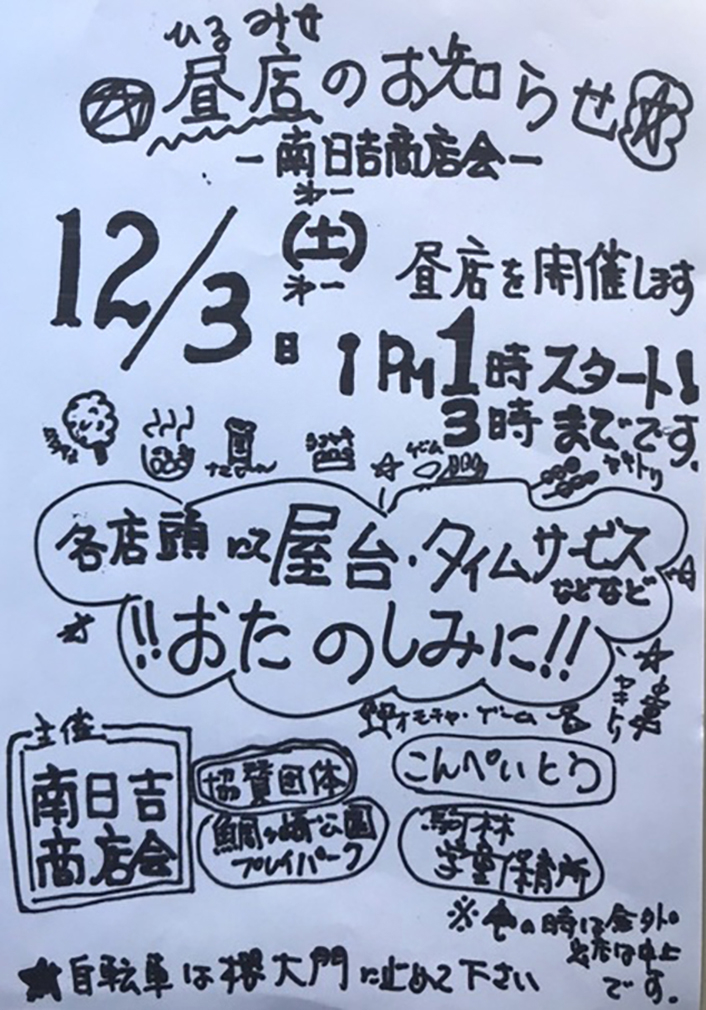 ひるみせ
昼店のお知らせ
ー南日吉商店会ー
12/3日(土) 昼店を開催します
PM1時スタート!
3時までです。
ゲーム
ヤキトリ
各店頭にて屋台・タイムサービス
などなど
!!おたのしみに!!
ヤキトリ
オモチャ・ゲーム
主催
南日吉
商店会
協賛団体
こんぺいとう
鯛ヶ崎公園
プレイパーク
駒林
学童保育所
※の時は
出店は中止
です。
★自転車は横大門に止めて下さい